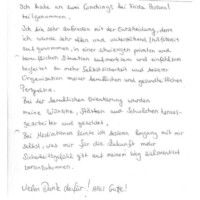 Ich habe an zwei Coachings bei Frida Bessel
teilgenommen.
Ich bin sehr zufrieden mit der Entscheidung, denn
ich wurde sehr offen und unterstützend (hilfsbereit)
aufgenommen, in einer schwierigen privaten und
beruflichen Situation aufmerksam und einfühlsam
begleitet zu mehr Selbstsicherheit und besserer
Organisation meiner beruflichen und gesundheitlichen
Perspektive.
Bei der beruflichen Orientierung wurden
meine Wünsche, Stärken und Schwächen heraus-
gearbeitet und gewichtet.
Bei Meditationen fand ich besseren Zugang mit mir
selbst, was mir für die Zukunft mehr
Sicherheit gibt auf meinem Weg Sicherheit
voranzukommen.
Vielen Dank dafür! Alles Gute!